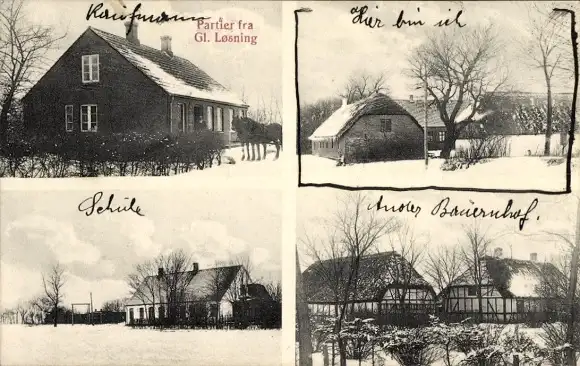 Kaufmann
Partier fra
Gl. Løsning
Hier bin ich
Schule
Ander Bauernhof.